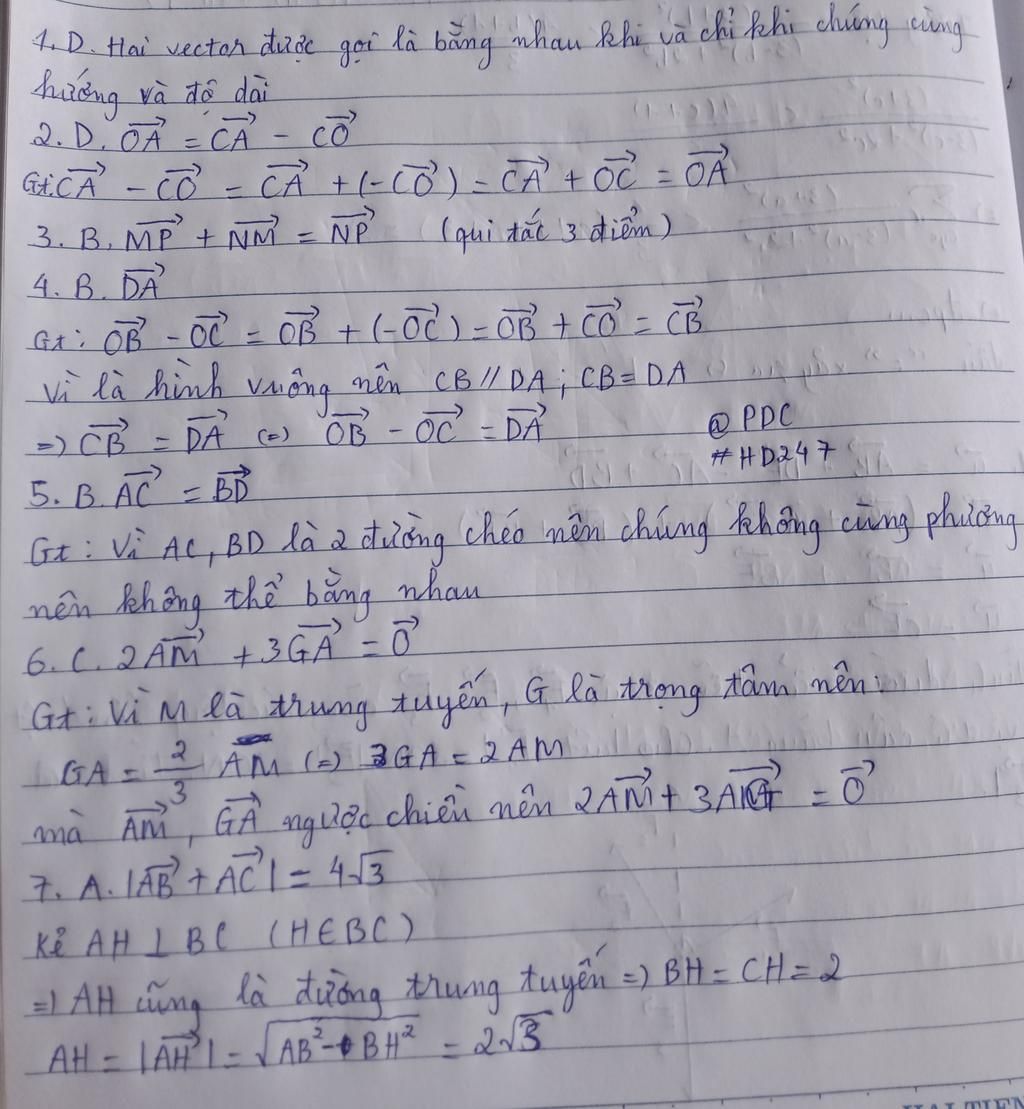 1. D. Hai vector được gọi là bằng nhau khi và chỉ khi chúng cùng
hướng và độ dài
2. D. \overrightarrow{OA} = \overrightarrow{CA} - \overrightarrow{CO}
Gt: \overrightarrow{CA} - \overrightarrow{CO} = \overrightarrow{CA} + (-\overrightarrow{CO}) = \overrightarrow{CA} + \overrightarrow{OC} = \overrightarrow{OA}
3. B. \overrightarrow{MP} + \overrightarrow{NM} = \overrightarrow{NP} (qui tắc 3 điểm)
4. B. \overrightarrow{DA}
Gt: \overrightarrow{OB} - \overrightarrow{OC} = \overrightarrow{OB} + (-\overrightarrow{OC}) = \overrightarrow{OB} + \overrightarrow{CO} = \overrightarrow{CB}
Vì là hình vuông nên CB // DA; CB = DA
=) \overrightarrow{CB} = \overrightarrow{DA} (=) \overrightarrow{OB} - \overrightarrow{OC} = \overrightarrow{DA}
@ PDC
# HD247
5. B. \overrightarrow{AC} = \overrightarrow{BD}
Gt: Vì AC, BD là 2 đường chéo nên chúng không cùng phương
nên không thể bằng nhau
6. C. 2\overrightarrow{AM} + 3\overrightarrow{GA} = \overrightarrow{0}
Gt: Vì M là trung tuyến, G là trọng tâm nên:
GA = \frac{2}{3} AM (=) 3GA = 2AM
mà \overrightarrow{AM}, \overrightarrow{GA} ngược chiều nên 2\overrightarrow{AM} + 3\overrightarrow{AG} = \overrightarrow{0}
7. A. |\overrightarrow{AB} + \overrightarrow{AC}| = 4\sqrt{3}
Kẻ AH ⊥ BC (H ∈ BC)
=) AH cũng là đường trung tuyến =) BH = CH = 2
AH = |\overrightarrow{AH}| = \sqrt{AB^2 - BH^2} = 2\sqrt{3}